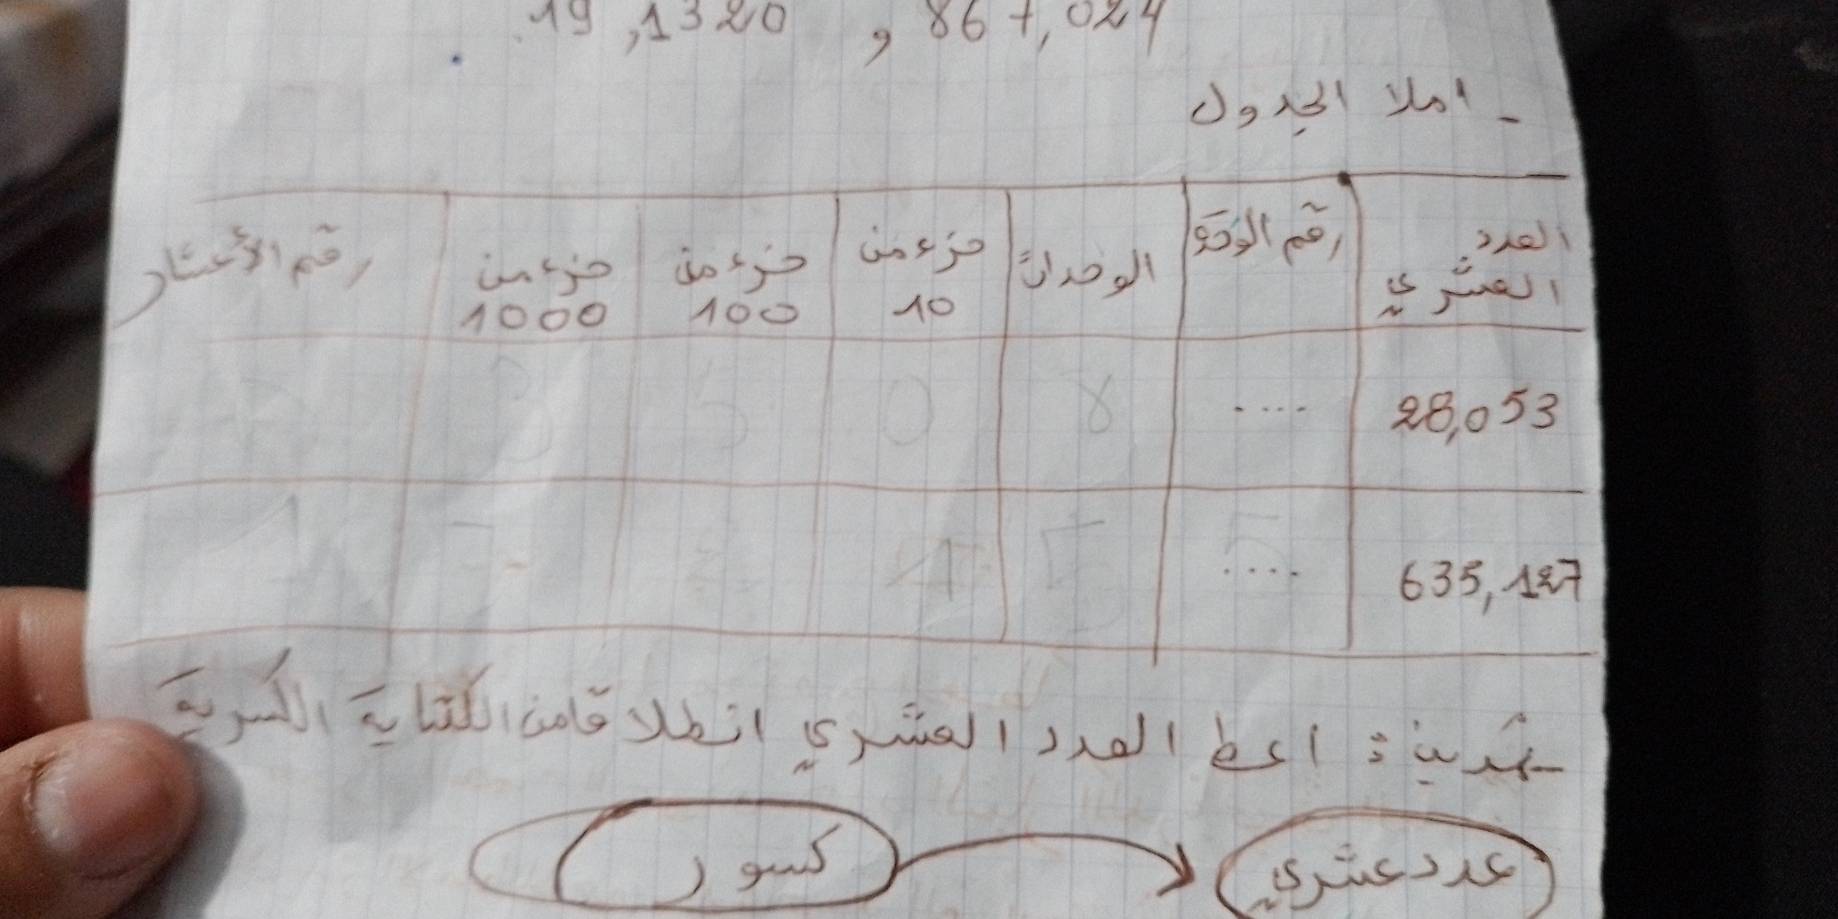 19,1320 , 867,024
- املا الجدول
العدد العشري | رقم الوحدة | الوحدات | جزء من 10 | جزء من 100 | جزء من 1000 | رقم الأعشار
28,053 | .... | 8 | 0 | 5 | 3
635,127 | .... 5 | 5 | 1 | 2 | 7 | 1
تمرين : اعط العدد العشري انطلاقا من الكتابة الكسرية
عدد عشري كسور